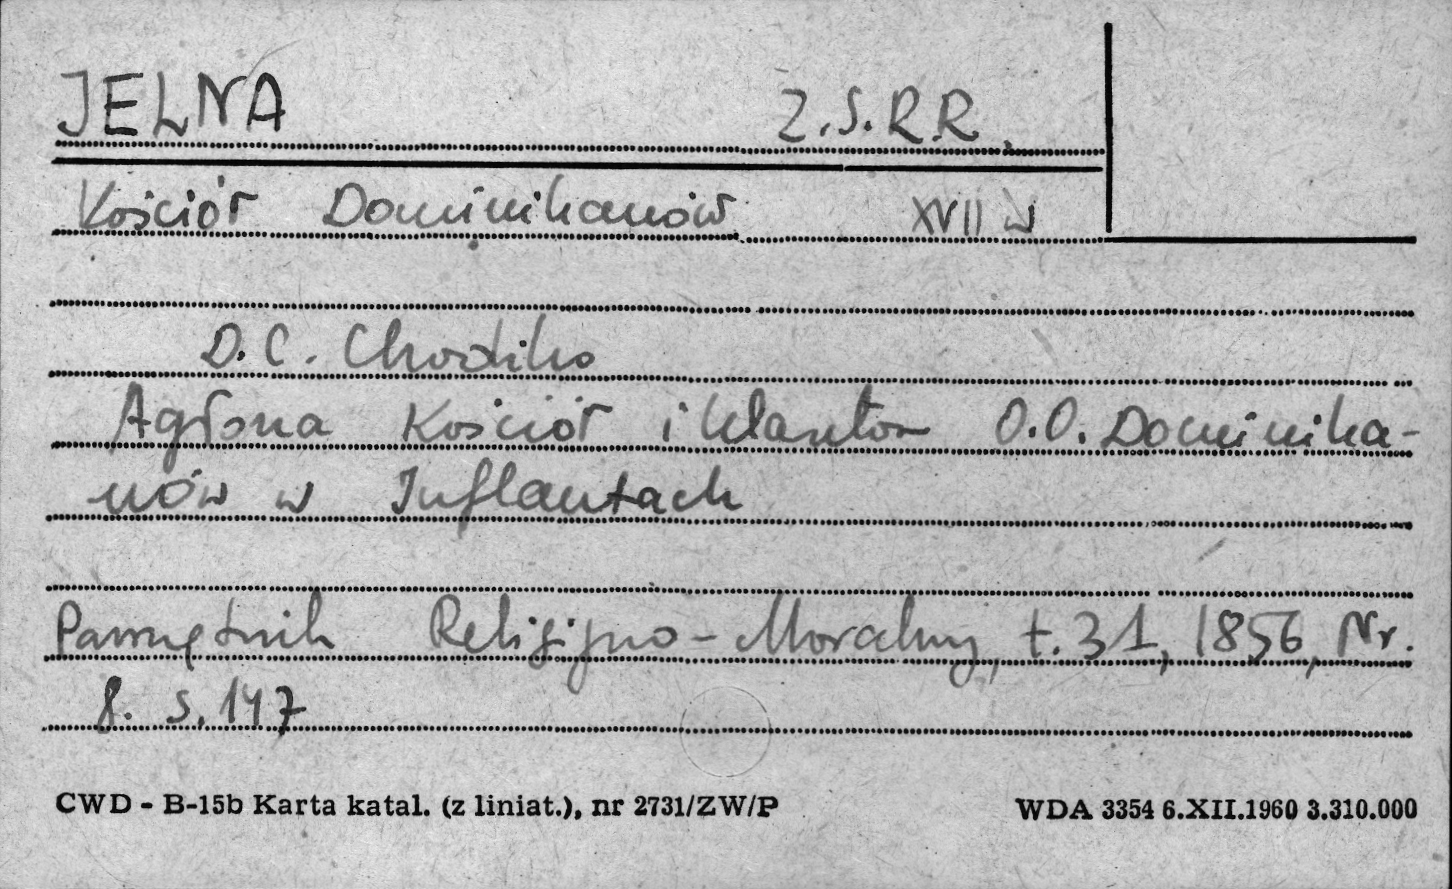 JELNA Z.S.R.R.
Kościół Dominikanów XVII w
D.C. Chodźko
Agłona Kościół i klasztor O.O. Dominika-
nów w Inflantach
Pamiętnik Religijno-Moralny, t. 31, 1856, Nr.
8. s. 147
CWD - B-15b Karta katal. (z liniat.), nr 2731/ZW/P WDA 3354 6.XII.1960 3.310.000